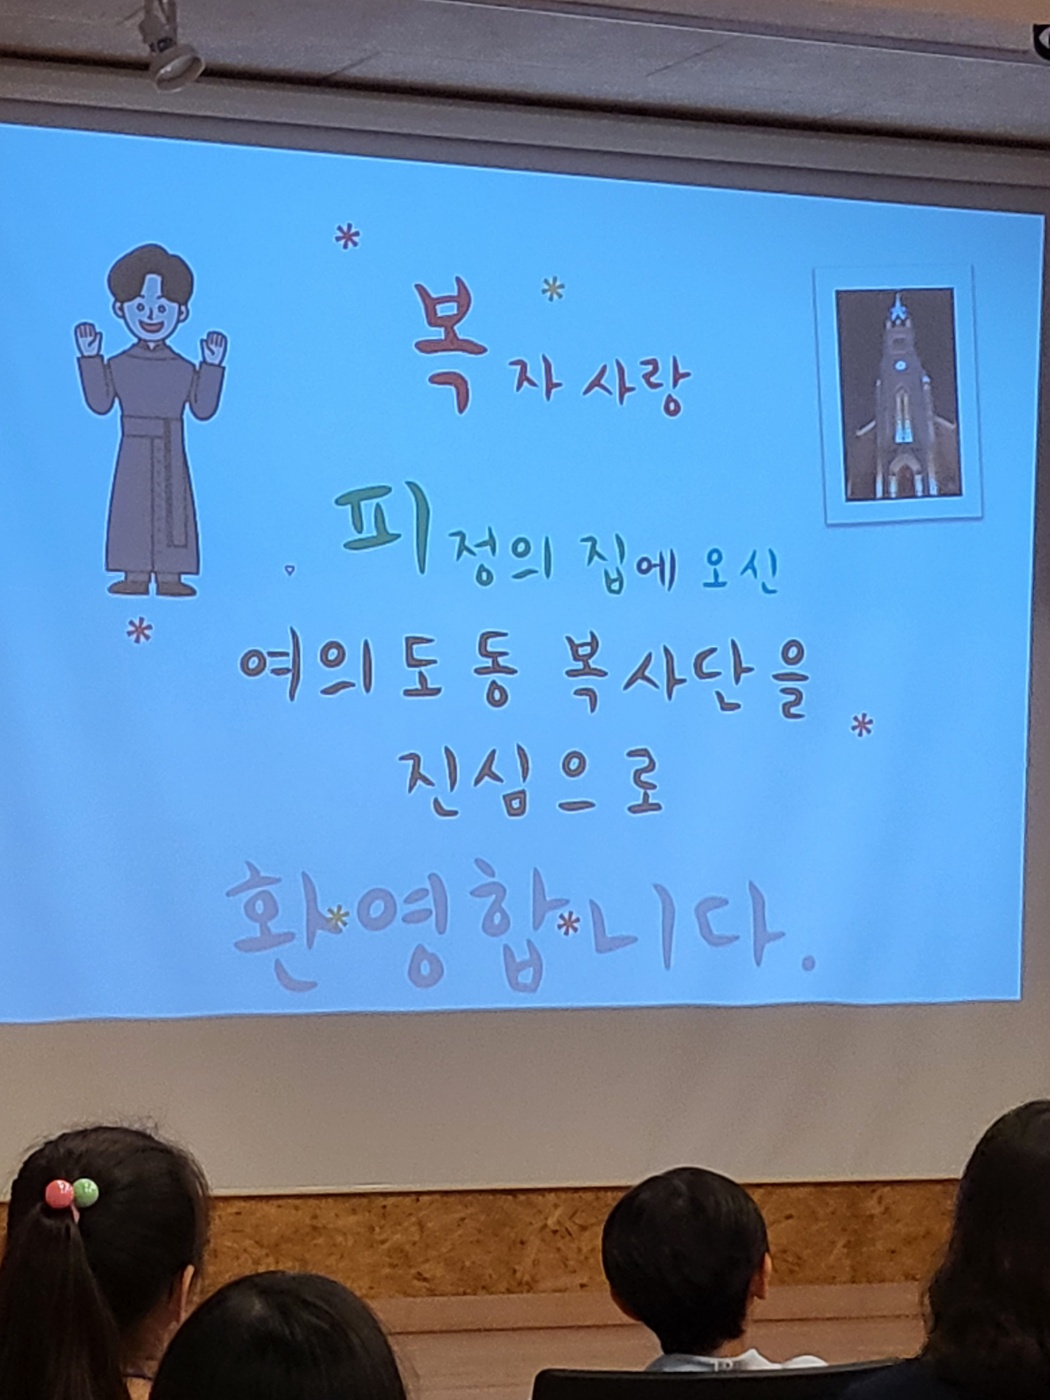 복자사랑
피정의 집에 오신
여의도동 복사단을
진심으로
환영합니다.